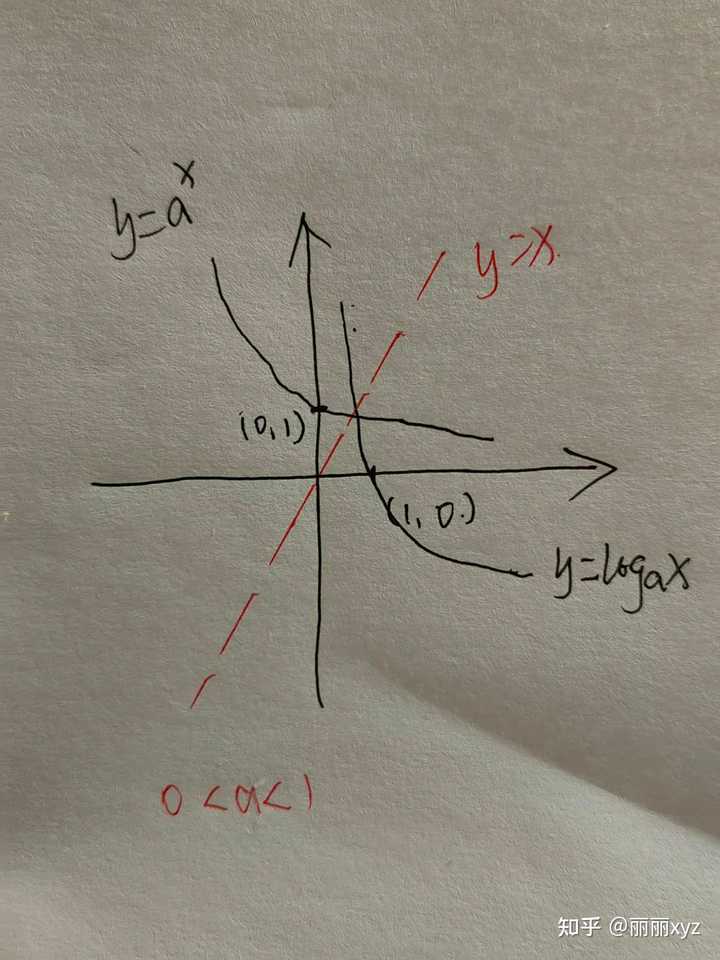 y=aˣ
y=x.
(0,1)
(1,0.)
y=logₐx
0<a<1
知乎 @丽丽xyz